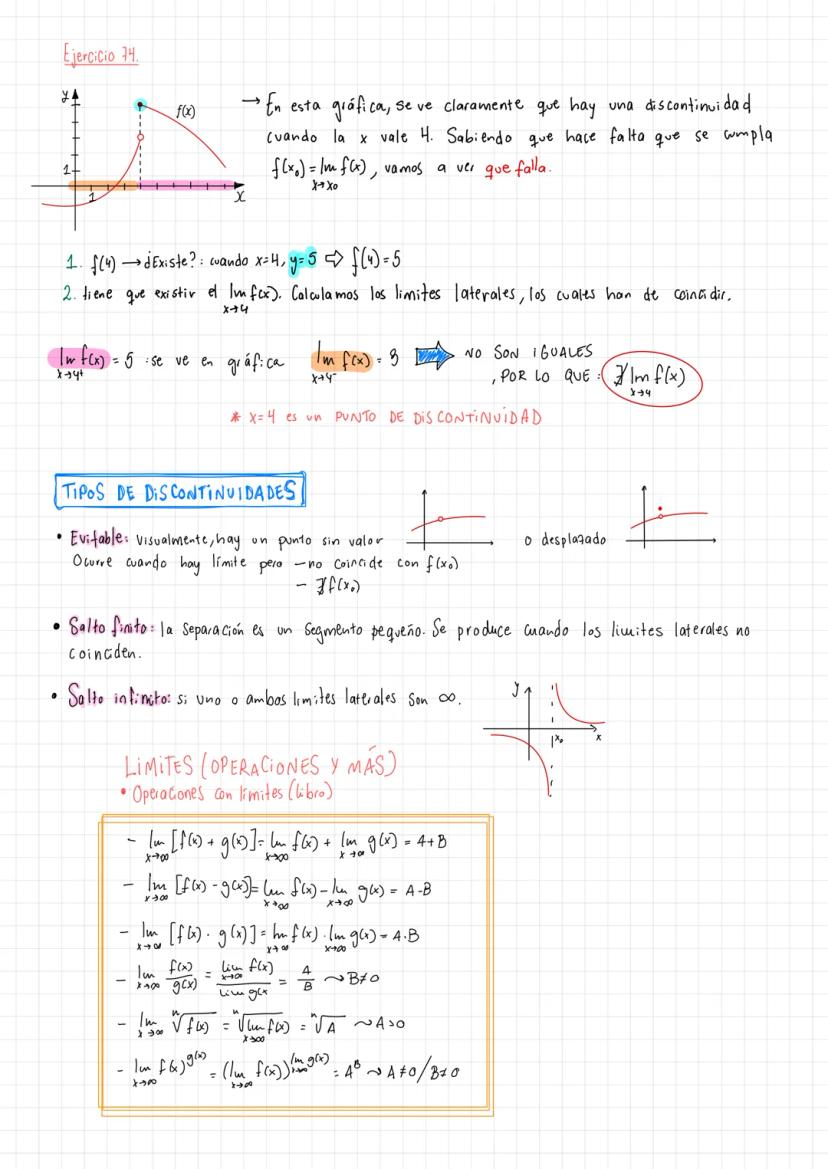 Ejercicio 74.
y
f(x)
1
1
x
→ En esta gráfica, se ve claramente que hay una discontinuidad
cuando la x vale 4. Sabiendo que hace falta que se cumpla
f(x₀) = lim f(x), vamos a ver que falla.
x→x₀
1. f(4) → ¿Existe?: cuando x=4, y=5 ⇒ f(4)=5
2. tiene que existir el lim f(x). Calculamos los limites laterales, los cuales han de coincidir.
x→4
lim f(x) = 5 : se ve en gráfica lim f(x) = 3 ⇒ NO SON IGUALES
x→4⁺ x→4⁻ , POR LO QUE : ∄ lim f(x)
x→4
* x=4 es un PUNTO DE DISCONTINUIDAD
TIPOS DE DISCONTINUIDADES
• Evitable: visualmente, hay un punto sin valor o desplazado
Ocurre cuando hay límite pero – no coincide con f(x₀)
– ∄ f(x₀)
• Salto finito: la separación es un segmento pequeño. Se produce cuando los limites laterales no
coinciden.
• Salto infinito: si uno o ambos limites laterales son ∞.
y
x₀
x
LIMITES (OPERACIONES Y MÁS)
• Operaciones con límites (libro)
- lim [f(x) + g(x)] = lim f(x) + lim g(x) = A+B
x→∞ x→∞ x→∞
- lim [f(x) - g(x)] = lim f(x) - lim g(x) = A-B
x→∞ x→∞ x→∞
- lim [f(x) · g(x)] = lim f(x) · lim g(x) = A·B
x→∞ x→∞ x→∞
- lim f(x)/g(x) = lim f(x)/lim g(x = A/B ~ B≠0
x→∞ x→∞
- lim ⁿ√f(x) = ⁿ√lim f(x) = ⁿ√A ~ A>0
x→∞ x→∞
- lim f(x)^g(x) = (lim f(x))^lim g(x) = A^B ~ A≠0/B≠0
x→∞ x→∞ x→∞